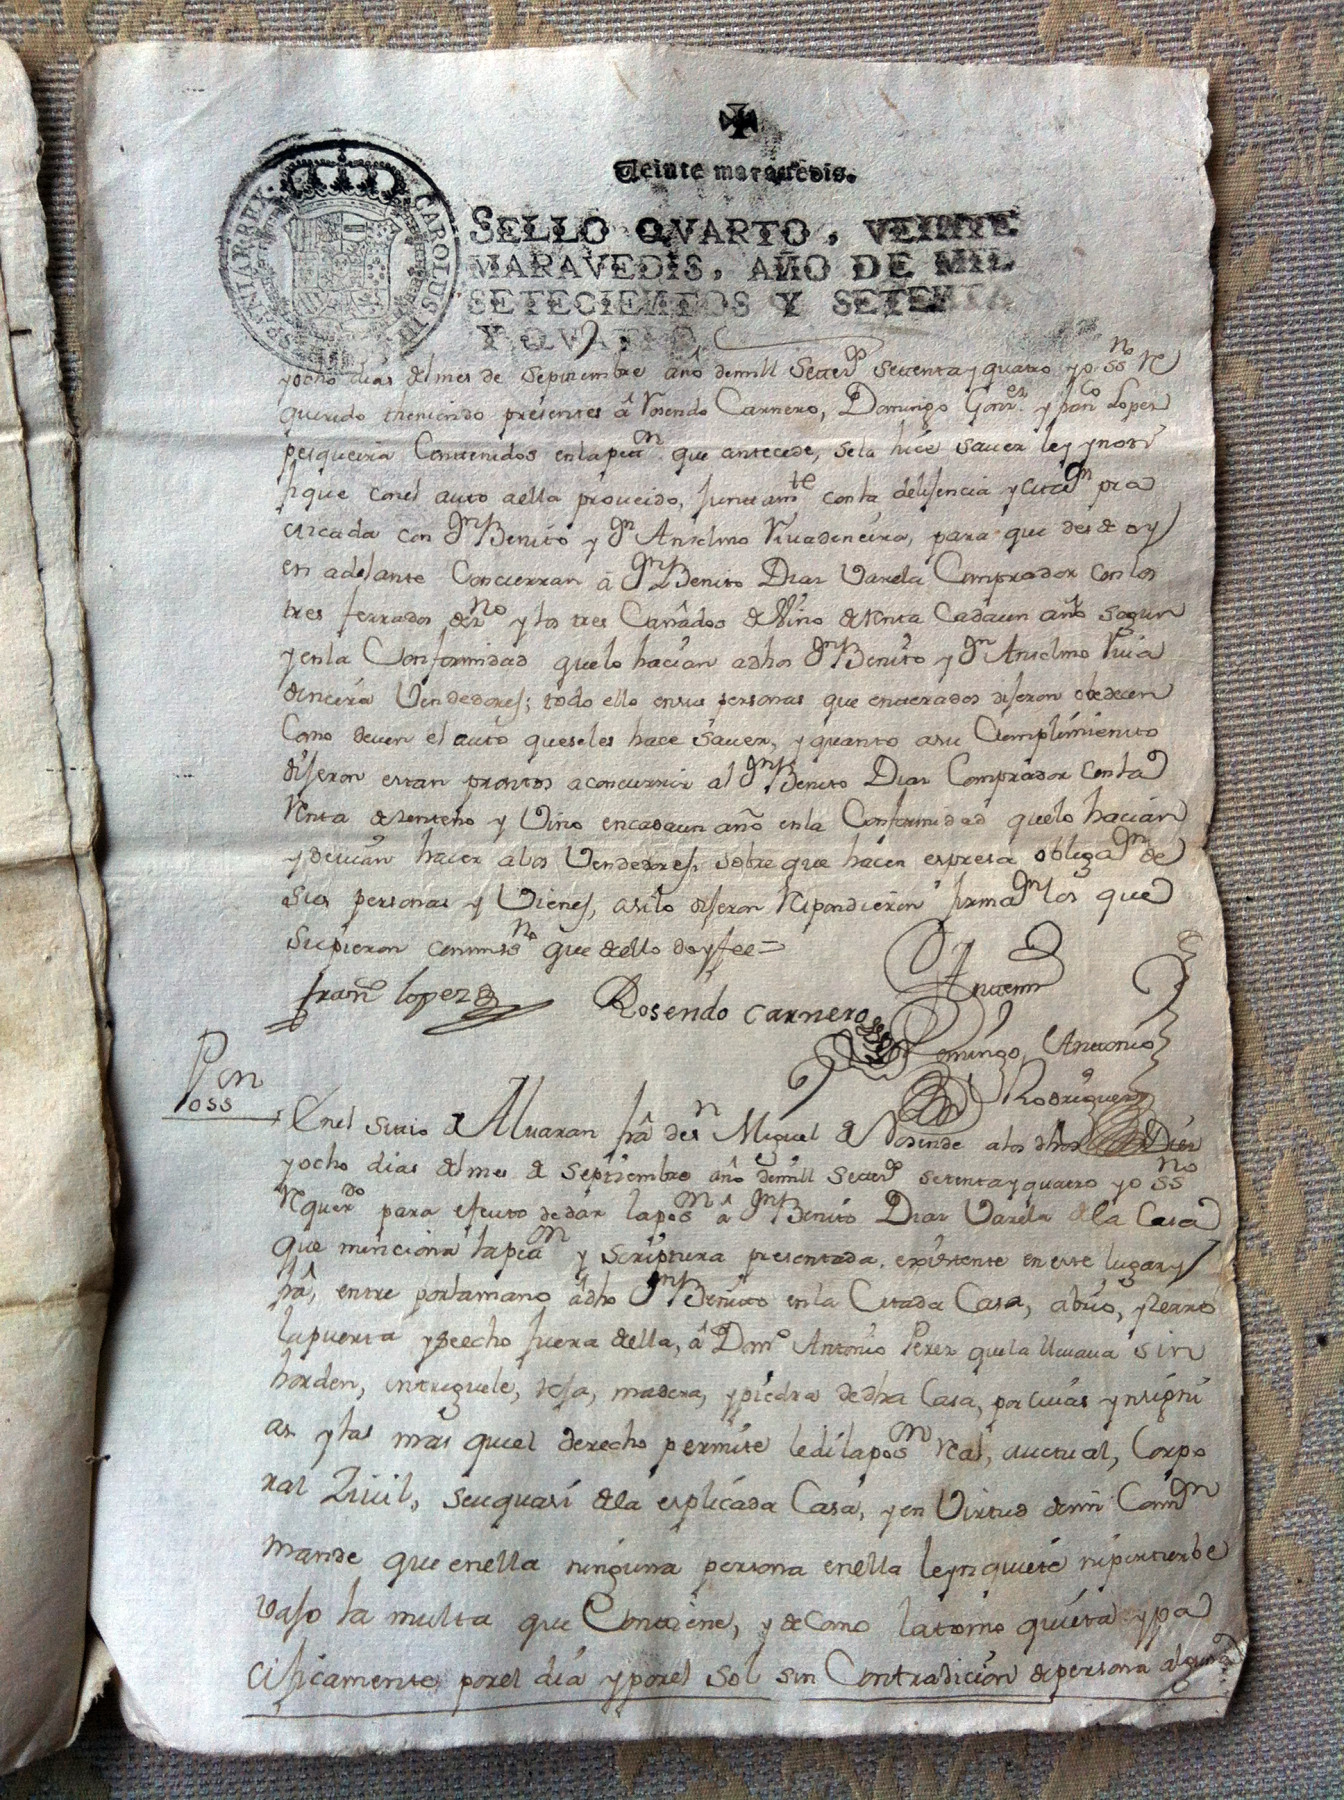 Veinte maravedis.
SELLO QVARTO, VEINTE
MARAVEDIS, AÑO DE MIL
SETECIENTOS Y SETENTA
Y QVATRO
CAROLUS III
HISPANIAR. REX
yocho dias del mes de Septiembre año demill Setteᵒˢ settenta y quatro yo ssⁿᵒ Re
querido theniendo presentes â Rosendo Carnero, Domingo Gonzᵉᶻ y franᶜᵒ Lopez
pesqueira Contenidos enlapetⁿ que antecede, sela hiće saver ley ynoti
fique conel auto aella proveido, Juntamᵗᵉ conla delijencia ycitacⁿ pra
cticada con Dⁿ Benito y Dⁿ Anselmo Rivadeneira, para que desde oy
en adelante Concurran â Dⁿ Benito Diaz Varela Comprador conlos
tres ferrados de ⁿᵒ ylos tres Canâdos de Vino de Renta Cadaun año segun
yenla Conformidad quelo hacian adhos Dⁿ Benito y Dⁿ Anselmo Riva
deneira Vendedores; todo ello ensus personas que enterados dijeron obedecen
Como deven el auto queseles hace saver, y quanto asu Cumplimiento
dijeron estan prontos aconcurrir al Dⁿ Benito Diaz Comprador conla
Renta dezenteno y Vino encadaun año enla Conformidad quelo hacian
ydevian hacer alos Vendedores, sobre que hacen espresa obligaⁿ de
sus personas y Vienes, asilo dijeron Respondieron firmaⁿ los que
supieron conmisⁿᵒ que dello doyfee=
franᶜᵒ lopez
Rosendo carnero
Antemi
Domingo Antonio
Rodriguez
Possᵒⁿ
Enel sitio de Alvaran frâ desⁿ Miguel de Rosende alos dhos Diez
yocho dias del mes de Septiembre año demill Setteᵒˢ setenta y quatro yo ssⁿᵒ
Requerᵈᵒ para efecto dedar laposⁿ â Dⁿ Benito Diaz Varela dela Casa
que minciona lapetⁿ y scriptura presentada, existente en este lugar y
frâ, entre porlamano âdho Dⁿ Benito enla Citada Casa, abrio, yzerro
lapuerta yseecho fuera della, â Domᵒ Antonio Perez quela llevava sin
horden, intreguele, teja, madera, ypiedra dedha Casa, por cuias ynsigni
as ylas mas quel derecho permite ledilaposⁿ Real, auctual, Corpo
ral Zivil, seuquasi dela esplicada Casa, yen Virtud demi Comⁿ
mande que enella ninguna persona enella leynquiete niperturbe
vajo la multa que Contiene, y de Como latomo quieta ypa
cificamente porel dia yporel sol sin Contradicion depersona alguna